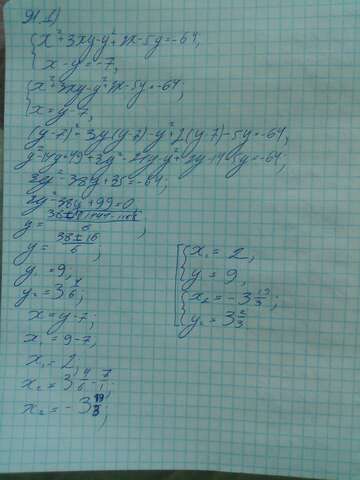 { x²+3xy-y²+2x-5y=-64,
{ x-y=-7,
{ x²+3xy-y²+2x-5y=-64;
{ x=y-7,
(y-7)²+3y(y-7)-y²+2(y-7)-5y=-64,
y²-14y+49+3y²-21y-y²+2y-14-5y=-64,
3y²-38y+35=-64;
3y²-38y+99=0,
y=
y= 38±16/6 ;
y₁=9,
y₂=3 4/6 ;
x=y-7;
x₁=9-7,
x₁=2,
x₂=3 4/6 - 7/1 ;
x₂=-3 19/3 ;
[ { x₁=2,
{ y=9,
{ x₂=-3 19/3 ;
{ y₂=3 2/3